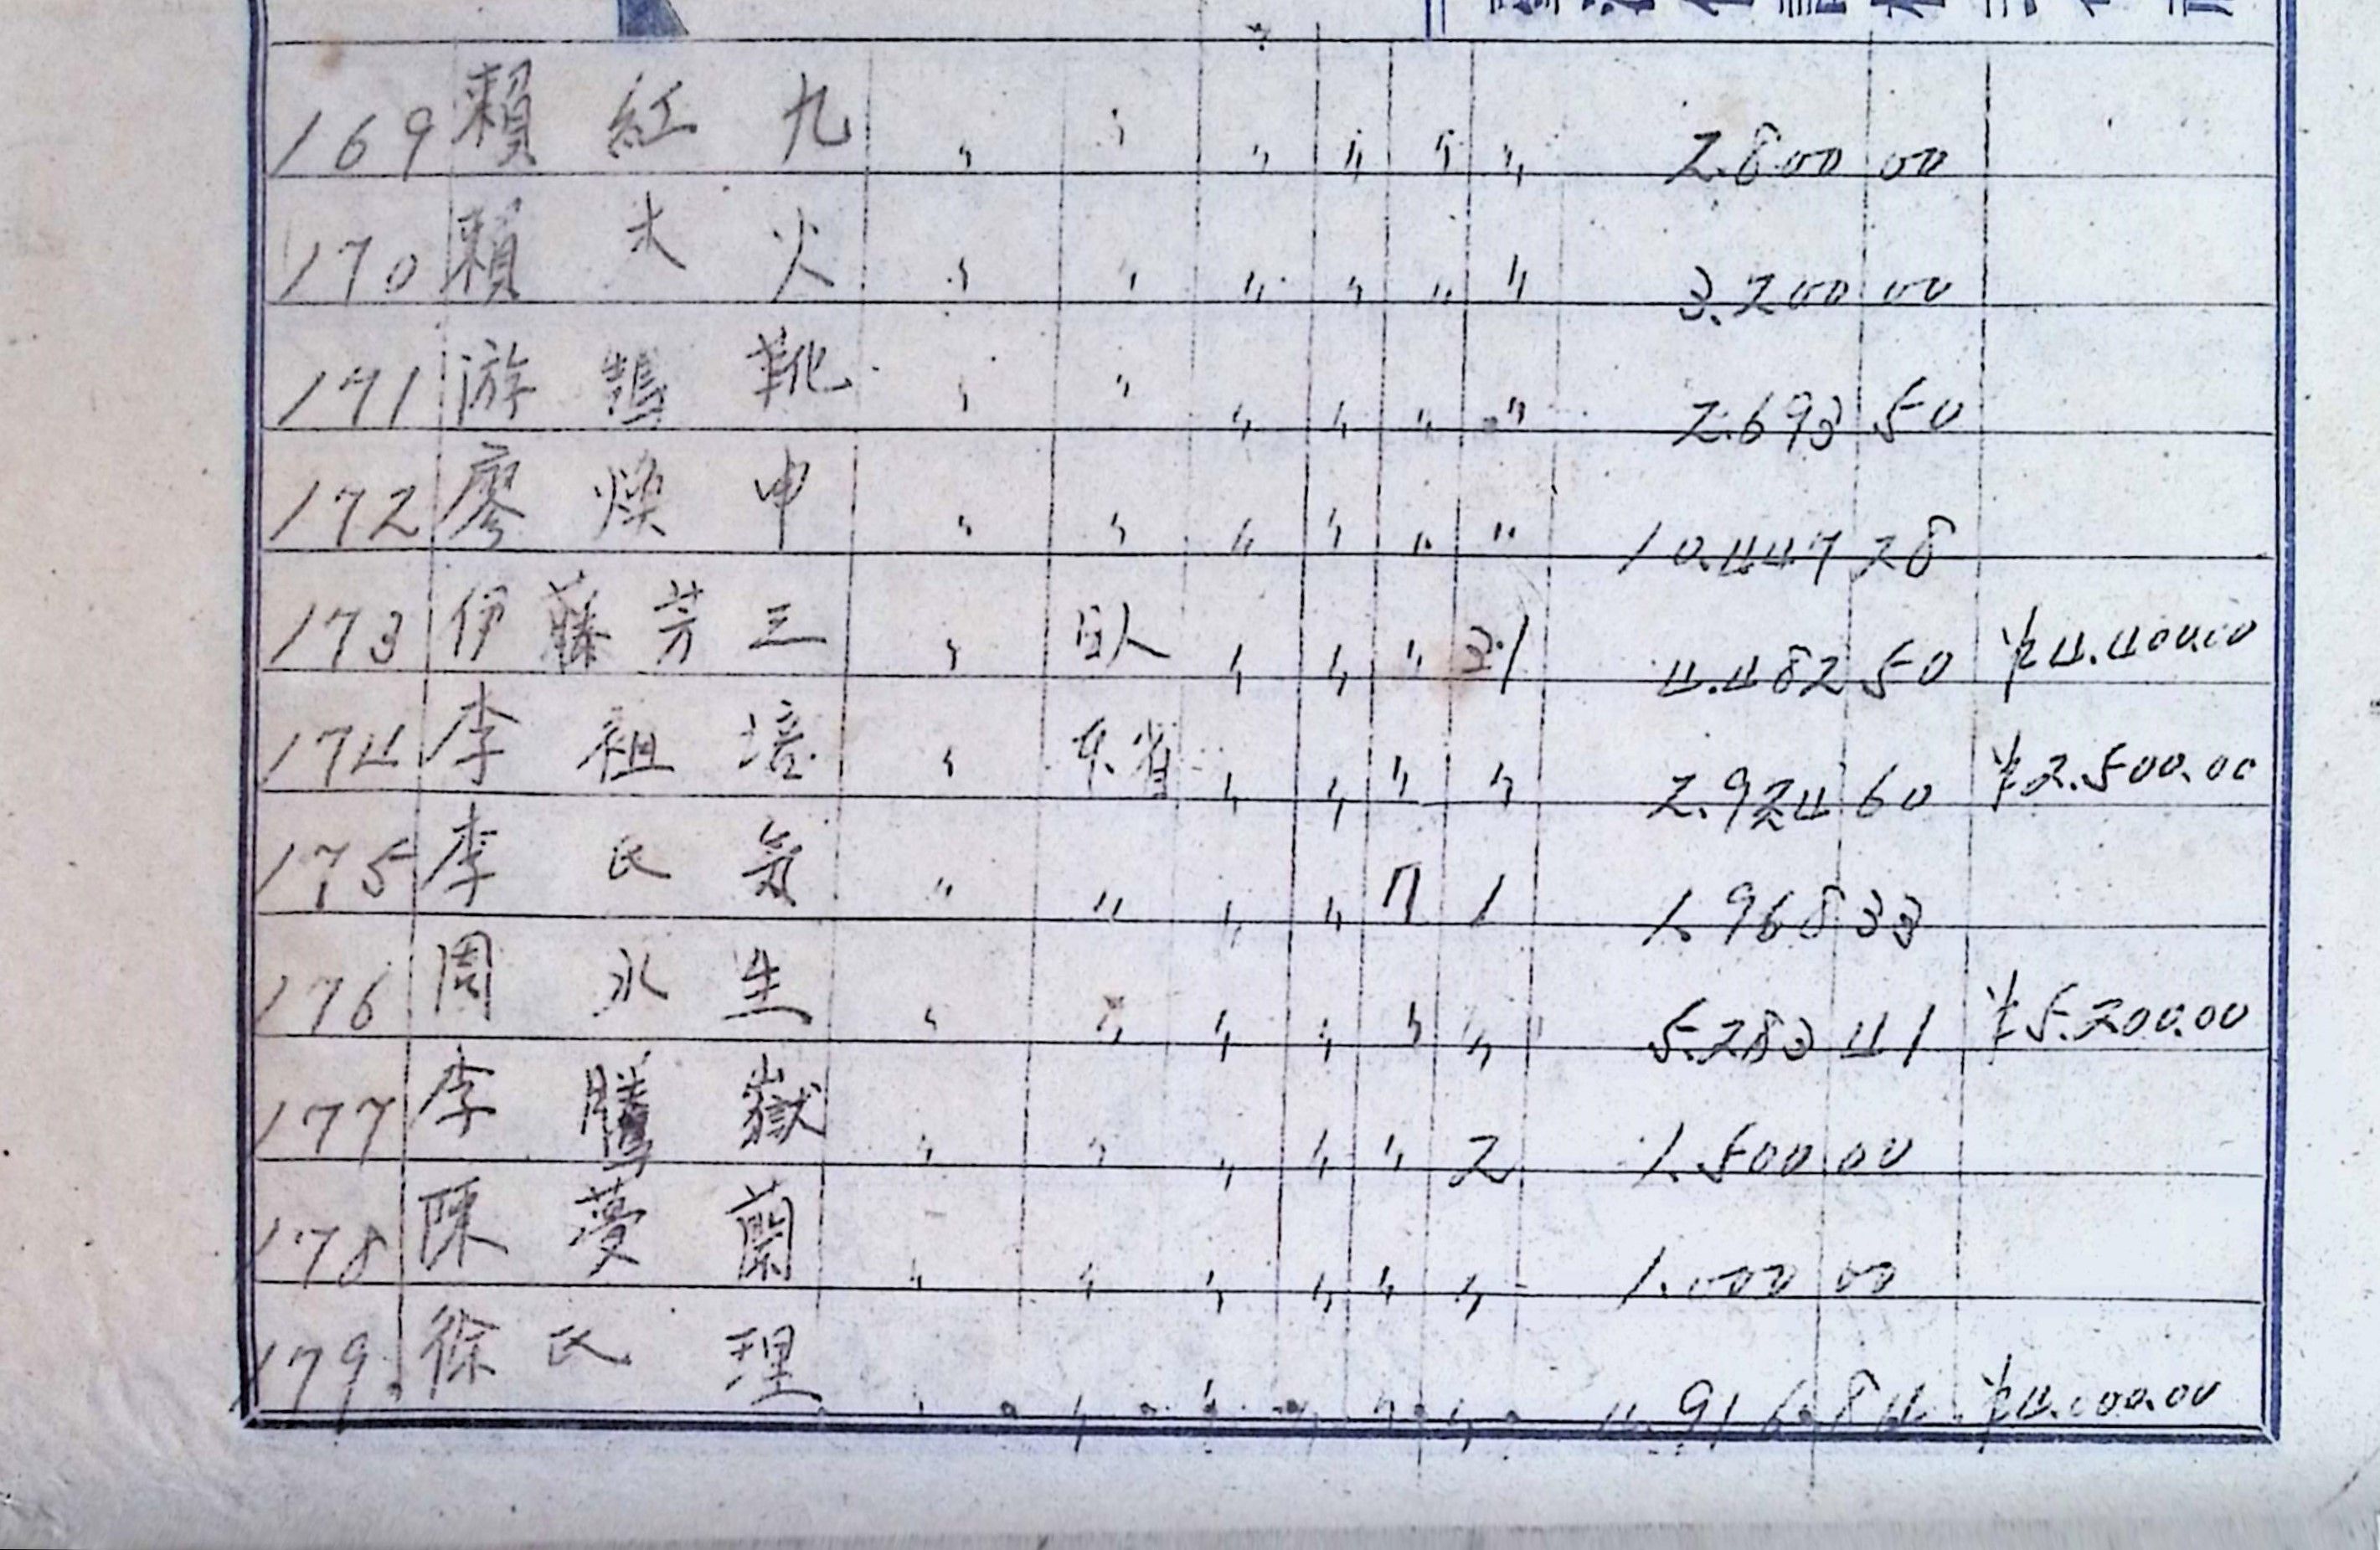 169 賴紅九 〃 〃 〃 〃 〃 〃 2.800 00
170 賴火 〃 〃 〃 〃 〃 〃 3.200 00
171 游靴 〃 〃 〃 〃 〃 〃 2.693 50
172 廖煥申 〃 〃 〃 〃 〃 〃 10.447 28
173 伊藤芳三 〃 日人 〃 〃 〃 31 4.482 50 ¥4.400.00
174 李祖培 〃 本省 〃 〃 〃 〃 2.924 60 ¥2.500.00
175 李氏 〃 〃 〃 〃 7 1 1.968 33
176 周永生 〃 〃 〃 〃 〃 〃 5.283 41 ¥5.200.00
177 李騰嶽 〃 〃 〃 〃 〃 2 1.500 00
178 陳蔓蘭 〃 〃 〃 〃 〃 〃 1.000 00
179 徐氏理 〃 〃 〃 〃 〃 〃 4.916 84 ¥4.000.00